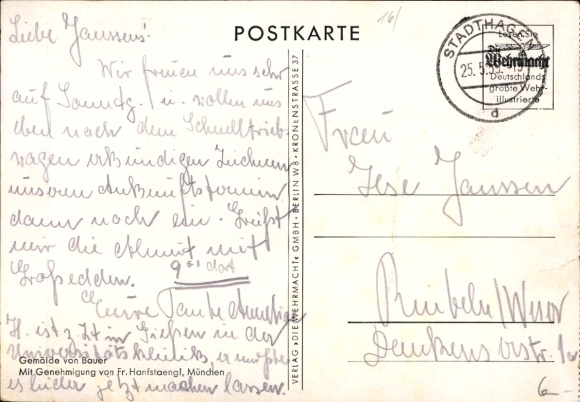 POSTKARTE
16/
Liebe Janssens!
Wir freuen uns sehr
auf Sonntg. u. wollen uns
eben nach dem Schnelltrieb-
wagen erkundigen Zeichnen
unseren Ankunftstermin
dann noch ein. Grüßt
mir die
mit
Großeltern.
9 01 dort
Eure Tante
H. ist z. Zt. in Gießen in der
Universitätsklinik, er mußte
es leider jetzt machen lassen.
Gemälde von Bauer
Mit Genehmigung von Fr. Hanfstaengl, München
VERLAG »DIE WEHRMACHT« GMBH · BERLIN W 8 · KRONENSTRASSE 37
STADTHAGEN
25. 5. 39.
d
Lesen Sie
Die
Wehrmacht
Deutschlands
größte Wehr-
illustrierte
Frau
Ilse Janssen
Rinteln/Weser
6-